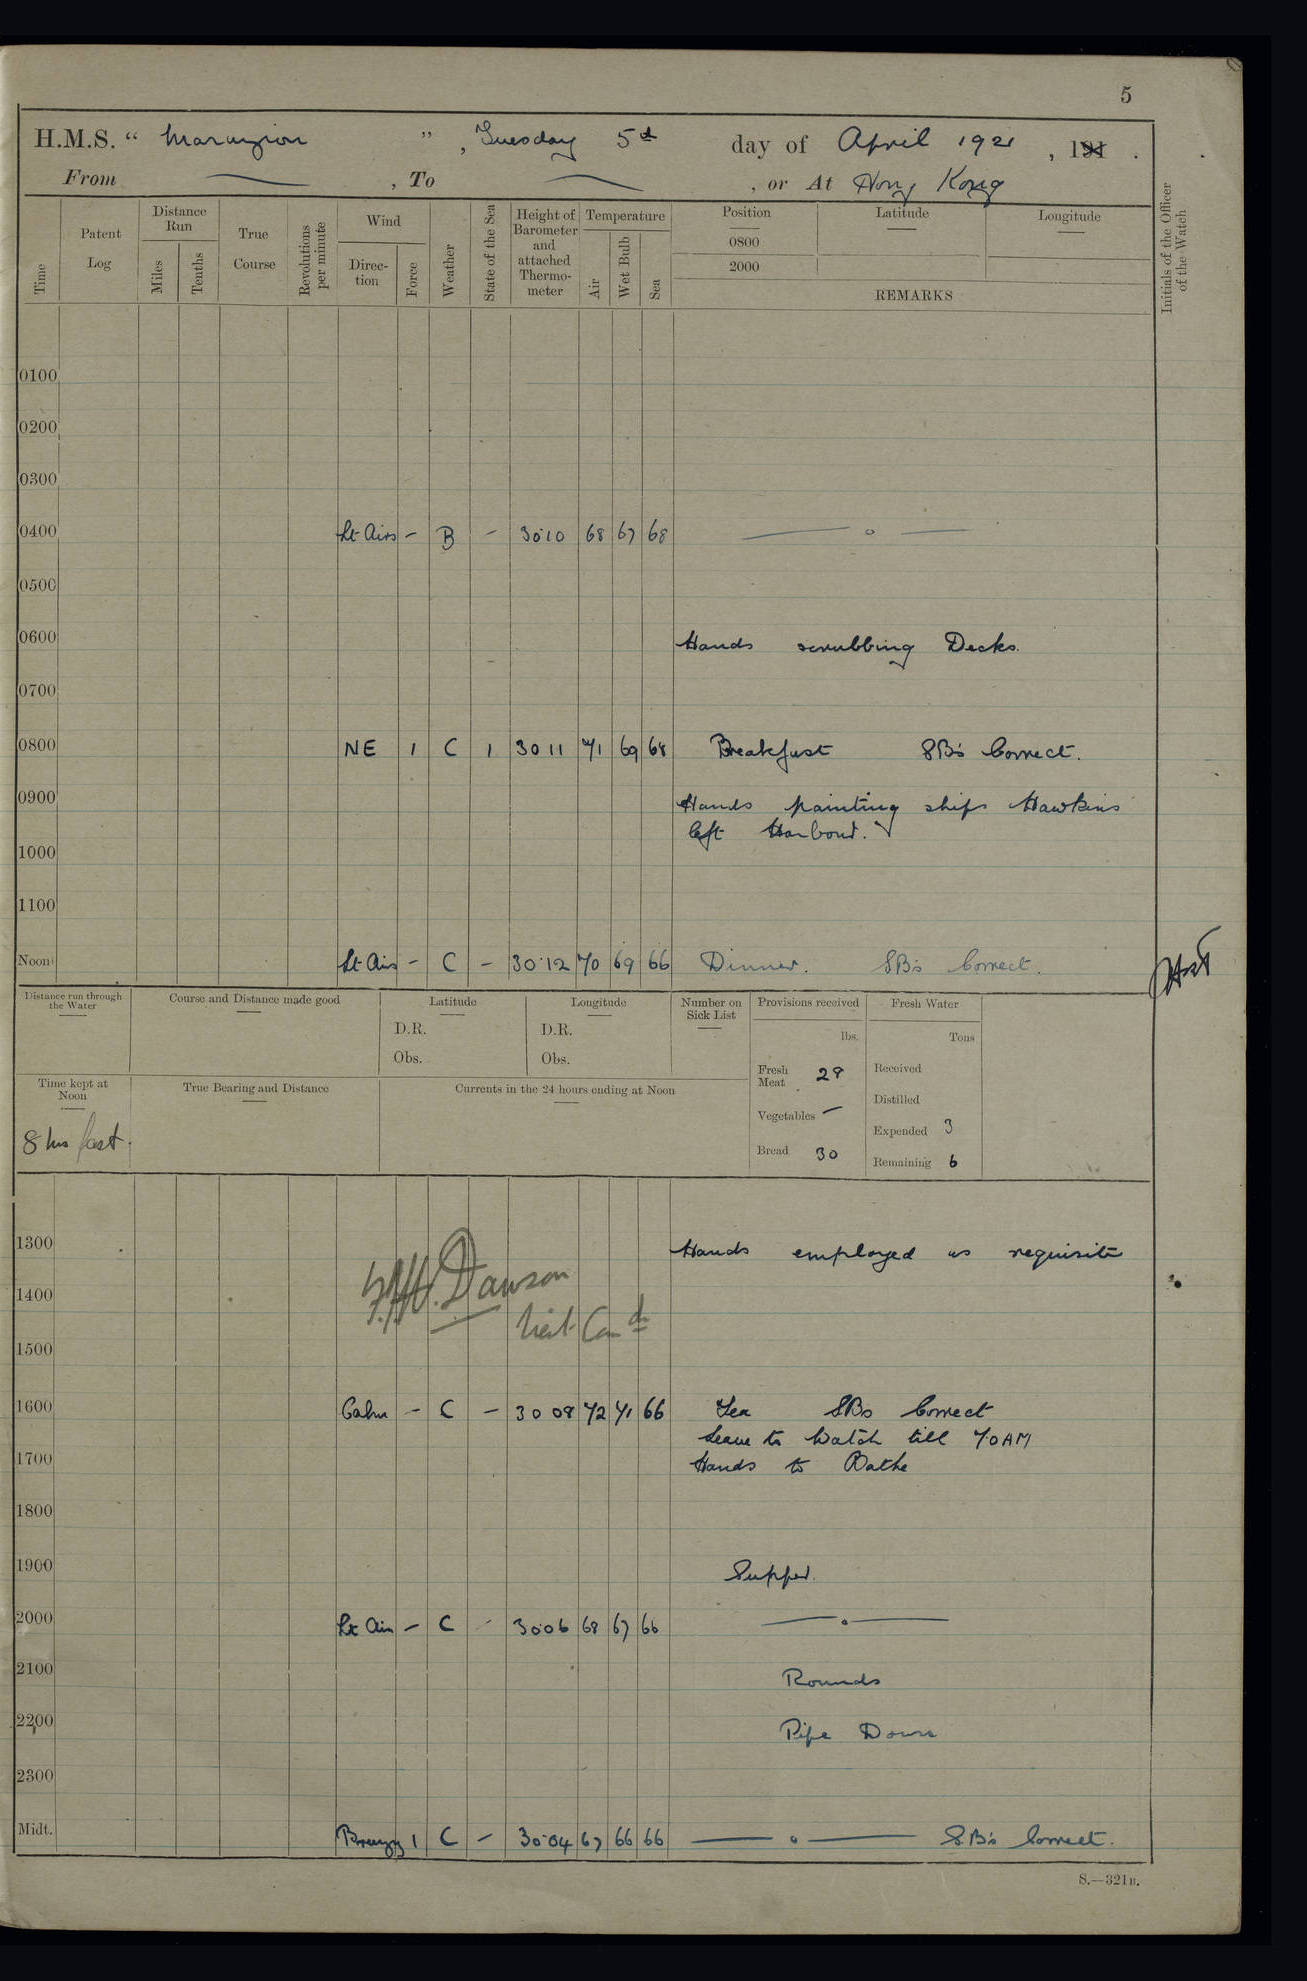 5
H.M.S. " Marazion " , Tuesday 5th day of April 1921 , 191 .
From , To , or At Hong Kong
Time
Patent Log
Distance Run
Miles
Tenths
True Course
Revolutions per minute
Wind
Direction
Force
Weather
State of the Sea
Height of Barometer and attached Thermo-meter
Temperature
Air
Wet Bulb
Sea
Position Latitude Longitude
0800
2000
REMARKS
Initials of the Officer of the Watch
0100
0200
0300
0400 Lt Airs – B – 30.10 68 67 68 — o —
0500
0600 Hands scrubbing Decks.
0700
0800 NE 1 C 1 30 11 71 69 68 Breakfast SB's Correct.
0900 Hands painting ship Hawkins
left Harbour.
1000
1100
Noon Lt Airs – C – 30.12 70 69 66 Dinner. SB's Correct.
Distance run through the Water
Course and Distance made good
Latitude
D.R.
Obs.
Longitude
D.R.
Obs.
Number on Sick List
Provisions received
lbs.
Fresh Meat 28
Vegetables –
Bread 30
Fresh Water
Tons
Received
Distilled
Expended 3
Remaining 6
Time kept at Noon
8 hrs fast.
True Bearing and Distance
Currents in the 24 hours ending at Noon
1300 Hands employed as requisite
Dawson
Lieut Comdr
1400
1500
1600 Calm – C – 30 08 72 71 66 Tea SBs Correct
Leave to Watch till 7.0 AM
1700 Hands to Bathe
1800
1900 Supper.
2000 Lt Airs – C – 30.06 68 67 66 — o —
2100 Rounds
2200 Pipe Down
2300
Midt. Breezy 1 C – 30.04 67 66 66 — o — S.B's Correct.
S.—321B.